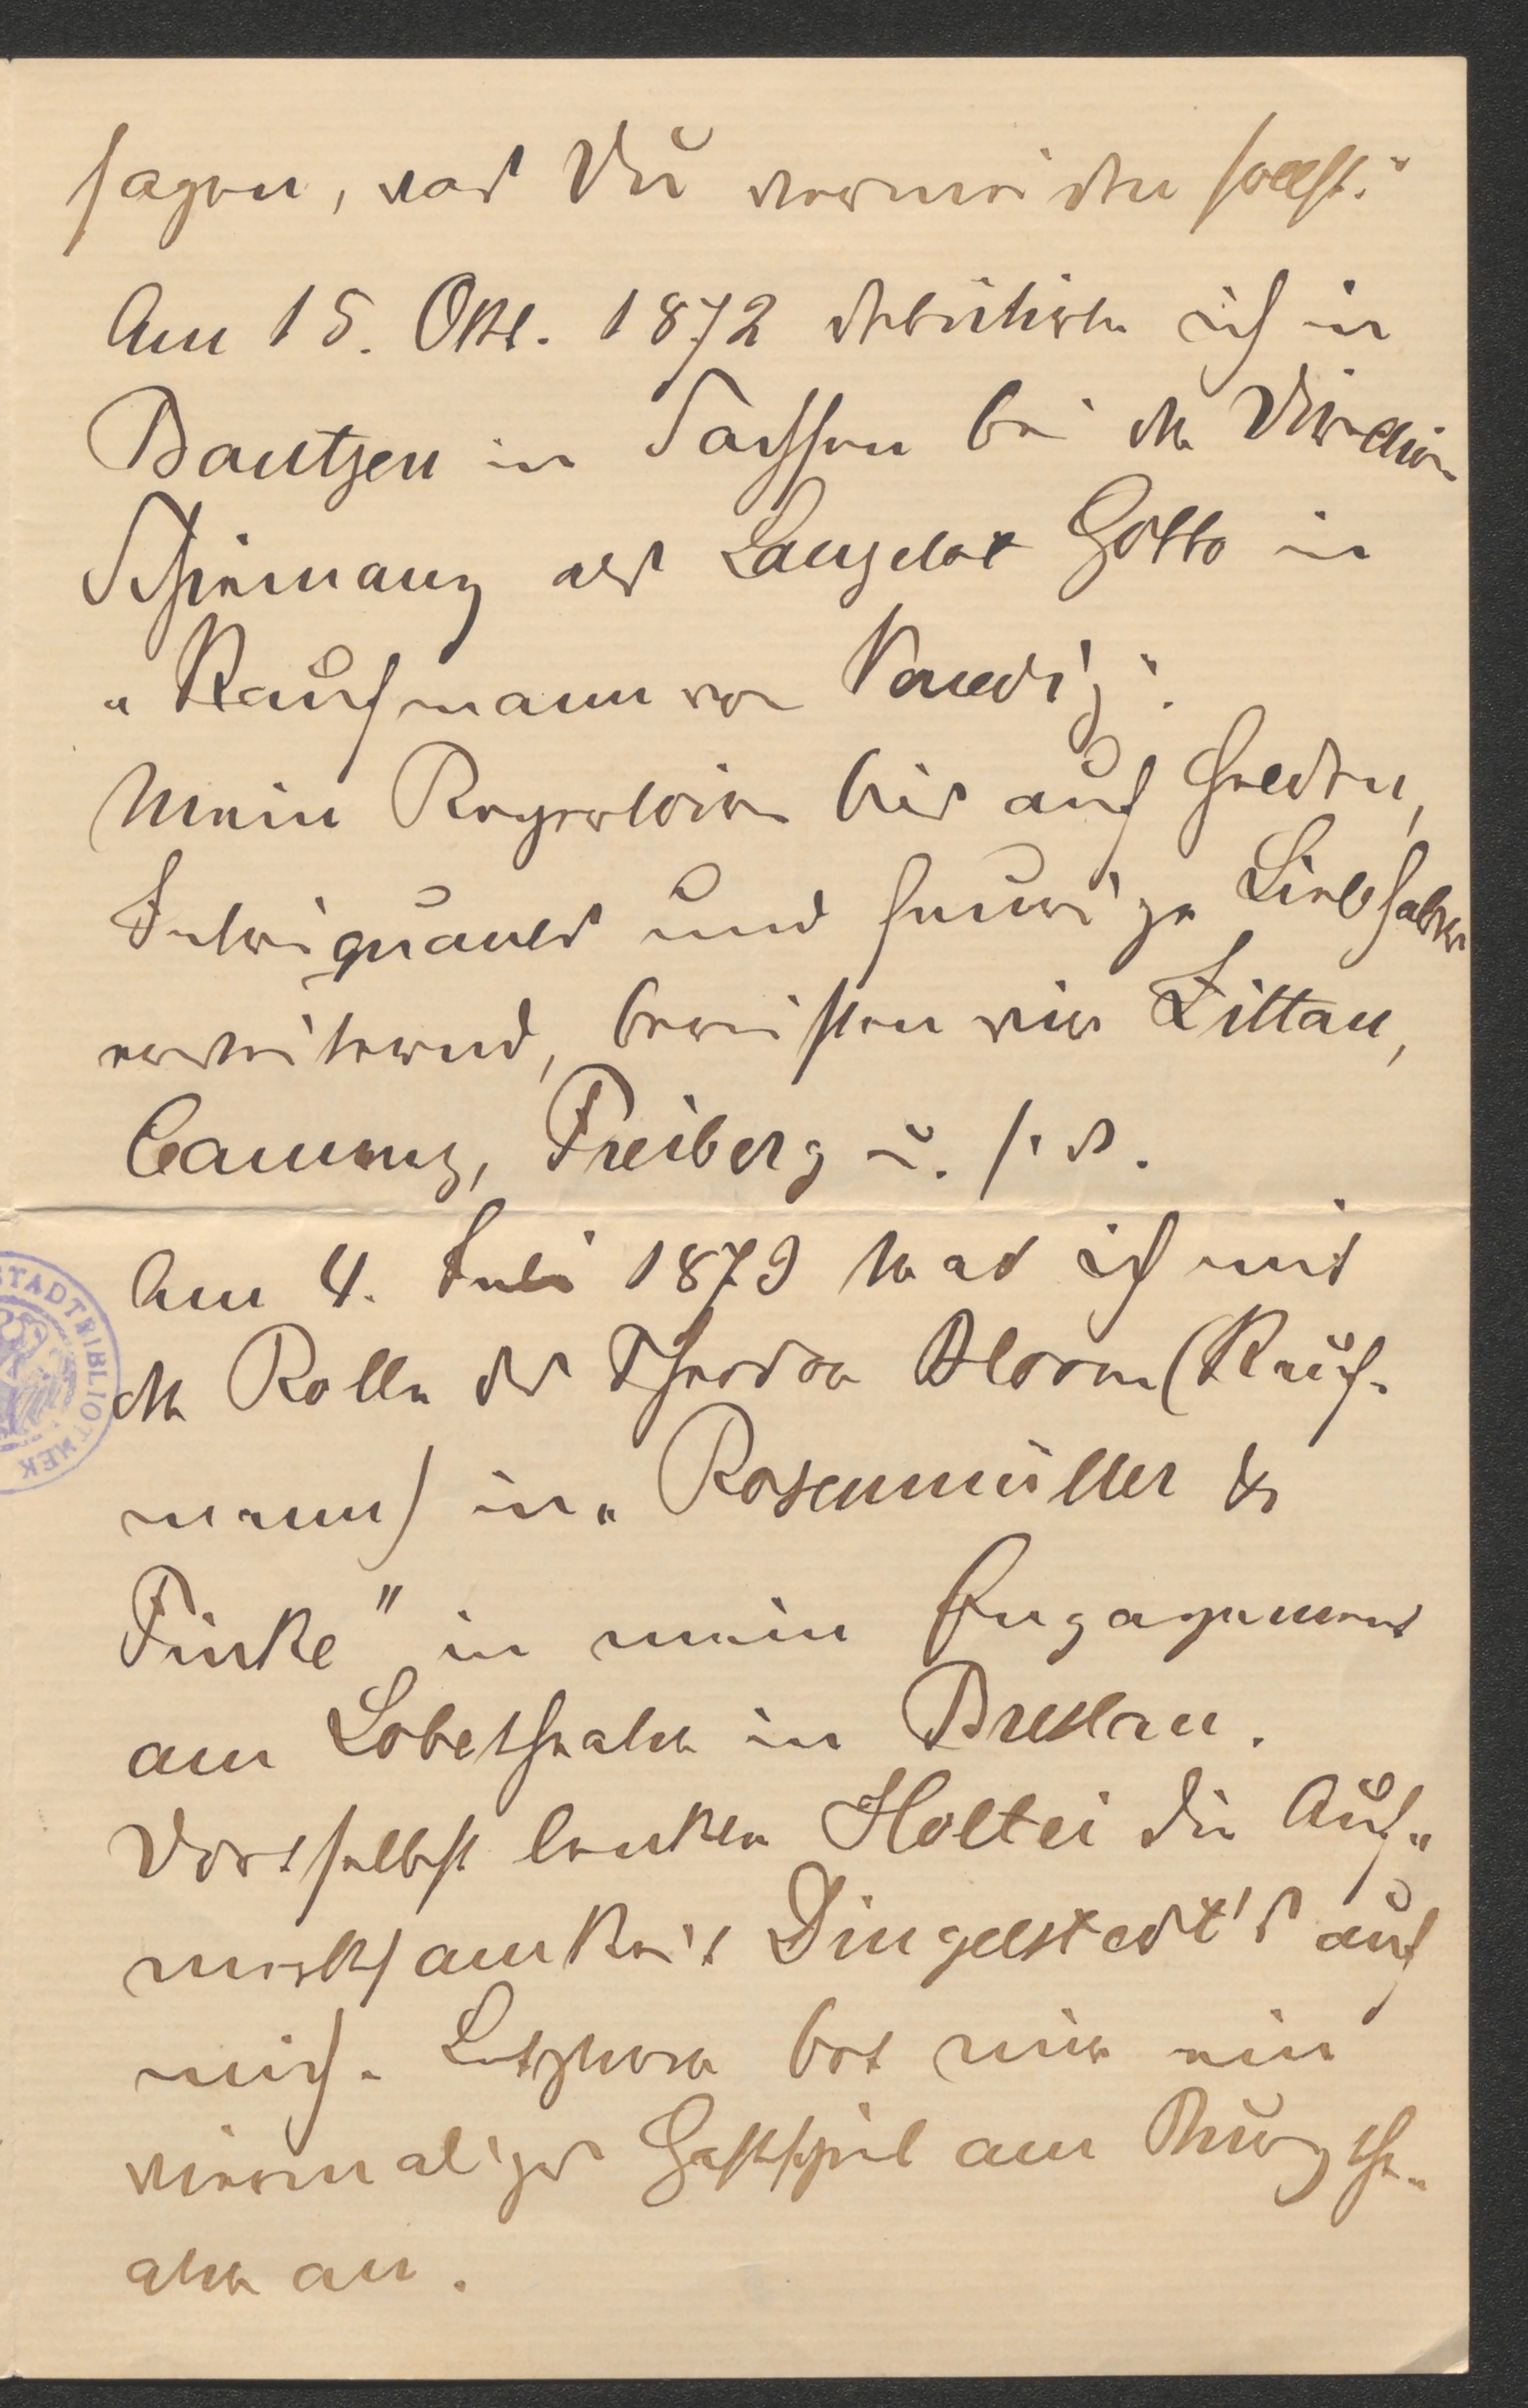 sagen, was Du vermeiden sollst."
Am 15. Okt. 1872 debütirte ich in
Bautzen in Sachsen bei der Direction
Schiemang als Lanzelot Gobbo in
„Kaufmann von Venedig".
Mein Repertoire bis auf Helden,
Intriquants und feurige Liebhaber
erweiternd, bereisten wir Zittau,
Camenz, Freiberg u. s. w.
Am 4. Juli 1879 trat ich mit
der Rolle des Theodor Bloom (Kauf-
mann) in „Rosenmüller &
Finke" in mein Engagement
am Lobetheater in Breslau.
Dortselbst lenkte Holtei die Auf-
merksamkeit Dingelstedt's auf
mich. Letzterer bot mir ein
viermaliges Gastspiel am Burgthe-
ater an.
STADTBIBLIOTHEK